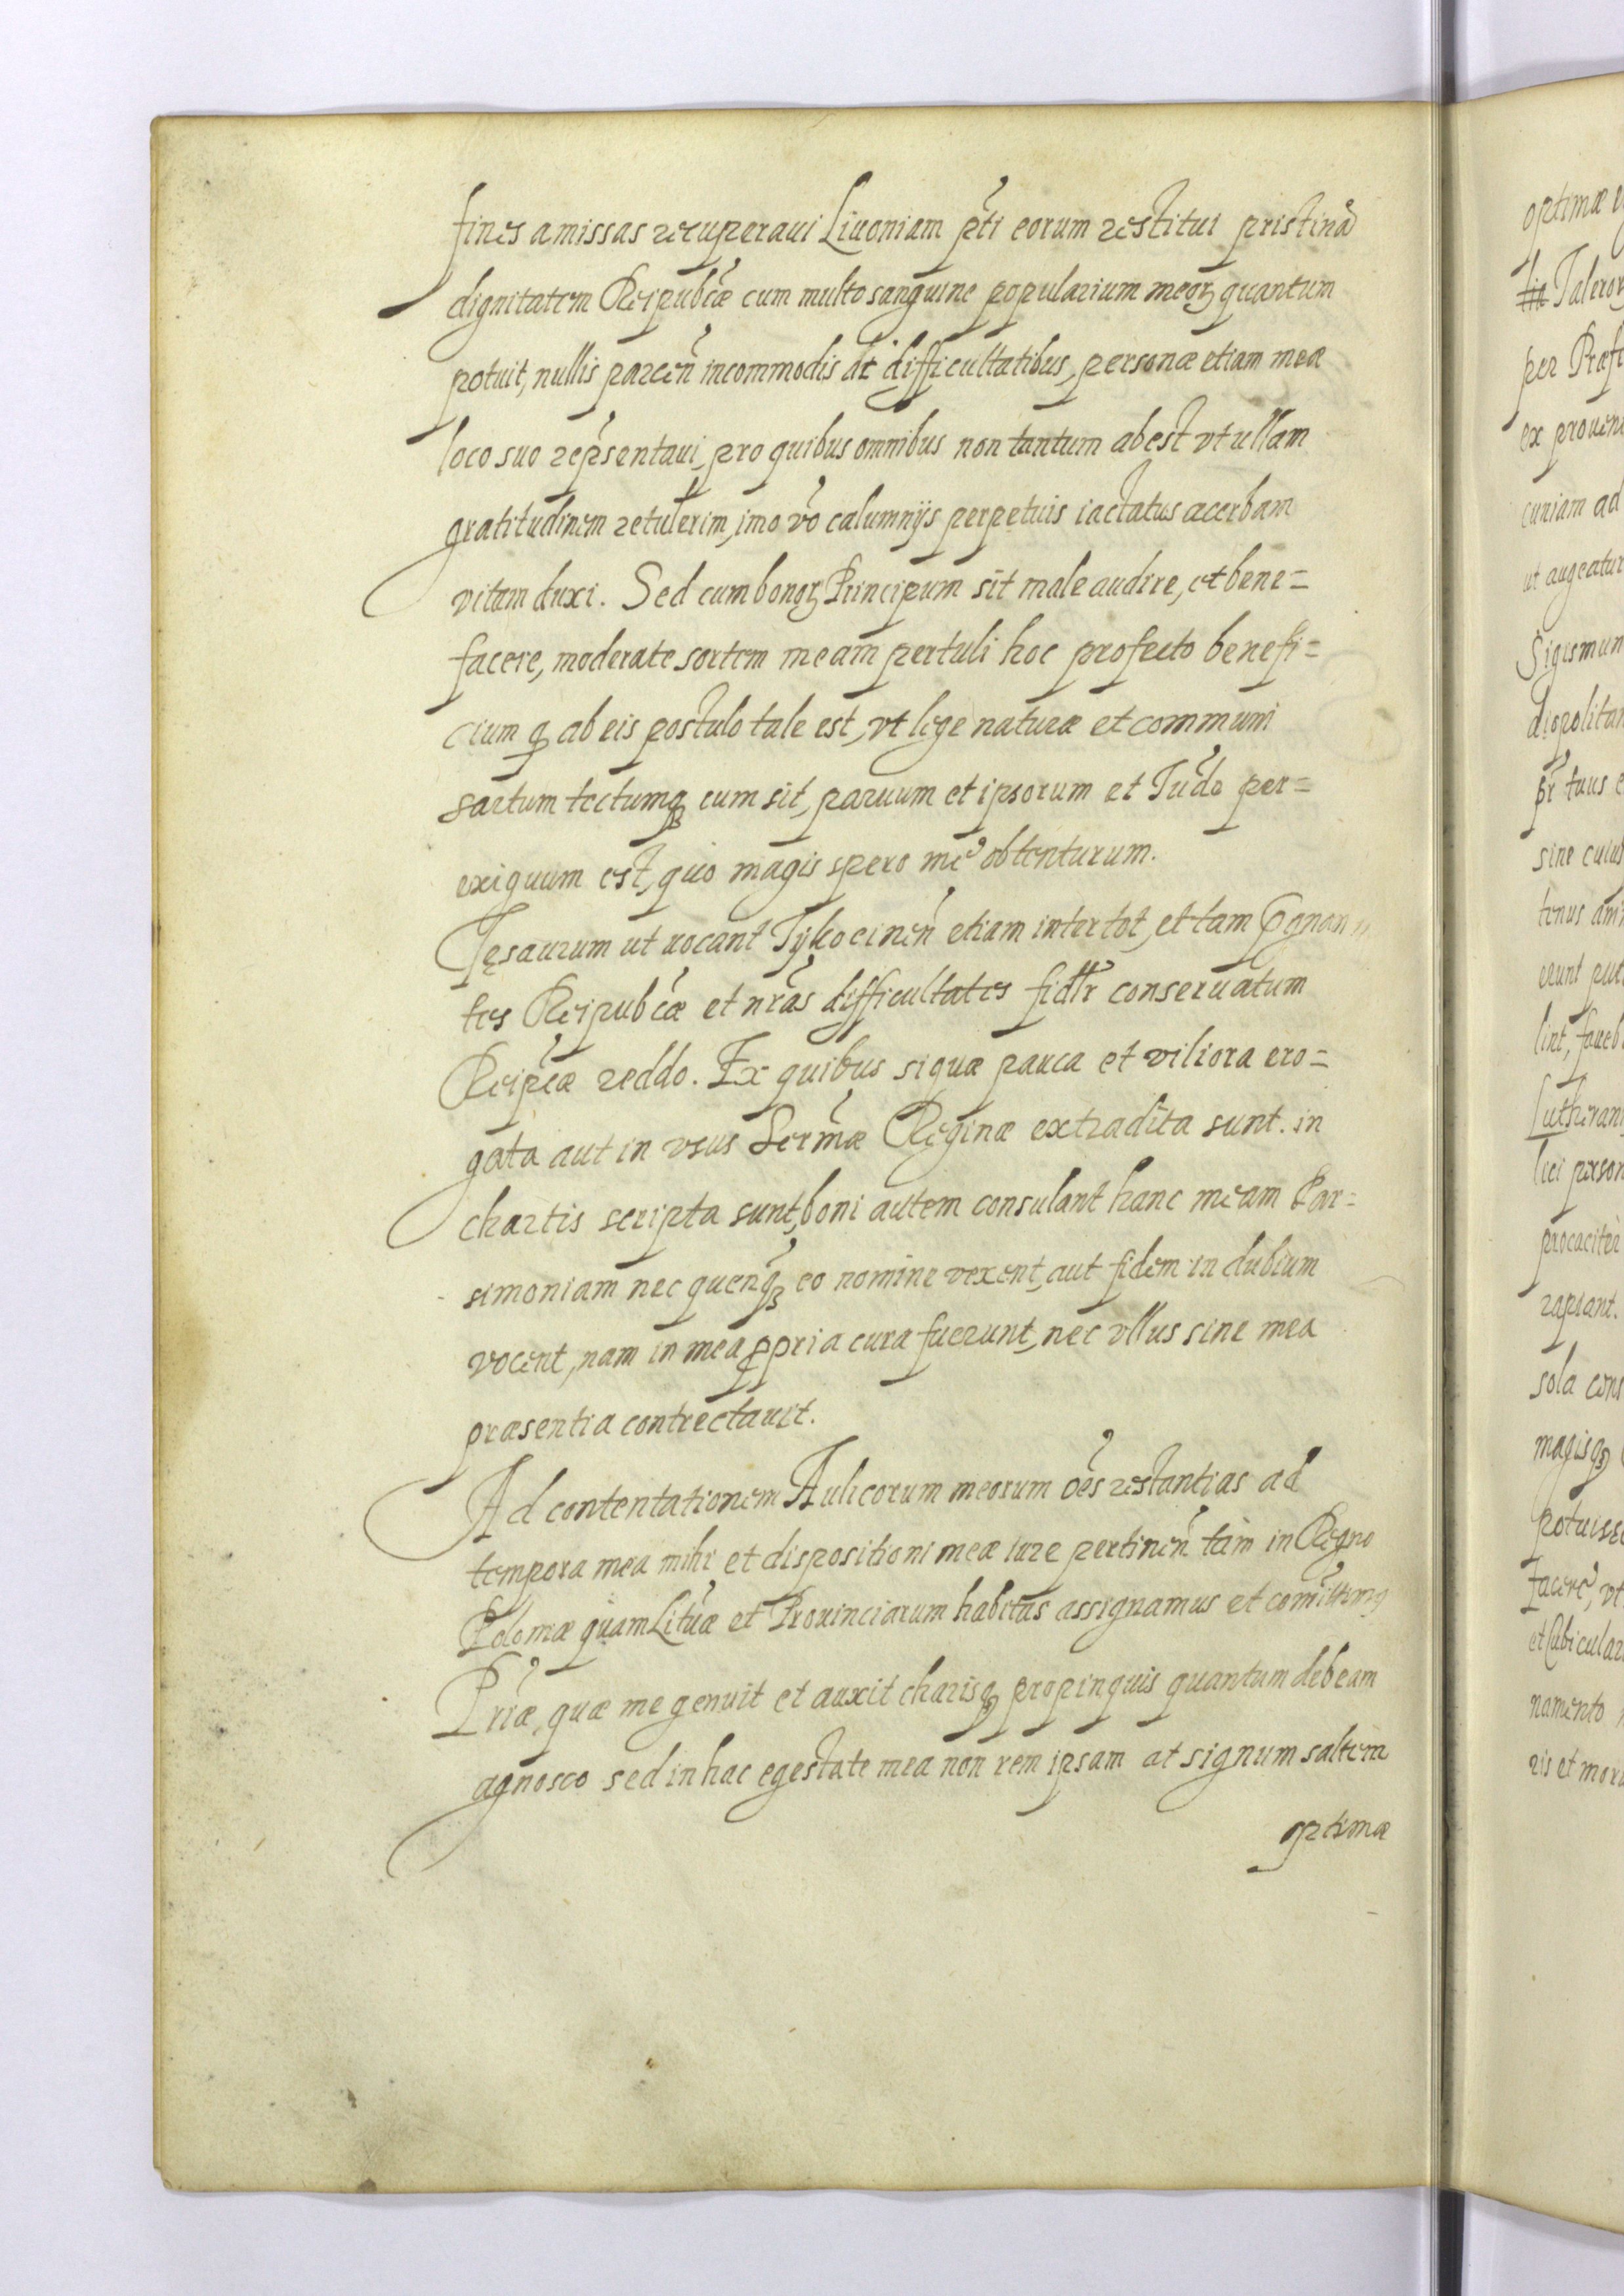 fines amissas recuperaui Liuoniam pti eorum restitui pristinã
dignitatem Reipubcæ cum multo sanguine popularium meoꝝ quantum
potuit, nullis parcen̄ incommodis et difficultatibus, personæ etiam meæ
loco suo repsentaui, pro quibus omnibus non tantum abest vt ullam
gratitudinem retulerim, imo vo calumnijs perpetuis iactatus acerbam
vitam duxi. Sed cum bonoꝝ Principum sit male audire, et bene=
facere, moderate sortem meam pertuli hoc profecto benefi=
cium q ab eis postulo tale est, vt lege naturæ et communi
sartum tectumqꝫ cum sit, paruum et ipsorum et Iudo per=
exiguum est, quo magis spero me obtenturum.
Tęsaurum ut uocant Tykocinen̄ etiam inter tot, et tam
tes Reipubcæ et nras difficultates fidlr conseruatum
Reipcæ reddo. Ex quibus siquæ pauca et viliora ero=
gata aut in vsus Sermæ Reginæ extradita sunt. in
chartis scripta sunt, boni autem consulant hanc meam Par=
simoniam nec quenqꝫ eo nomine vexent, aut fidem in dubium
vocent, nam in mea ꝓpria cura fuerunt, nec vllus sine mea
præsentia contrectauit.
Ad contentationem Aulicorum meorum oēs restantias ad
tempora mea mihi et dispositioni meæ iure pertinen̄ tam in Regno
Poloniæ quam Lituæ et Prouinciarum habitas assignamus et comittimꝰ
Priæ, quæ me genuit et auxit charisqꝫ propinquis quantum debeam
agnosco sed in hac egestate mea non rem ipsam at signum saltem
optimæ
optimæ
Talerorꝝ
per
ex
cuniam ad
ut augeatur
tuus
sine
tenus
sola
magisqꝫ
facere, vt
namento
ris et